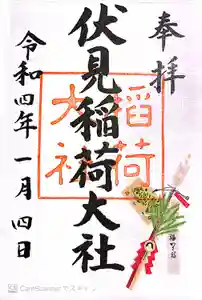 奉拝
伏見稲荷大社
稲荷
大社
令和四年一月四日
CamScanner でスキャン